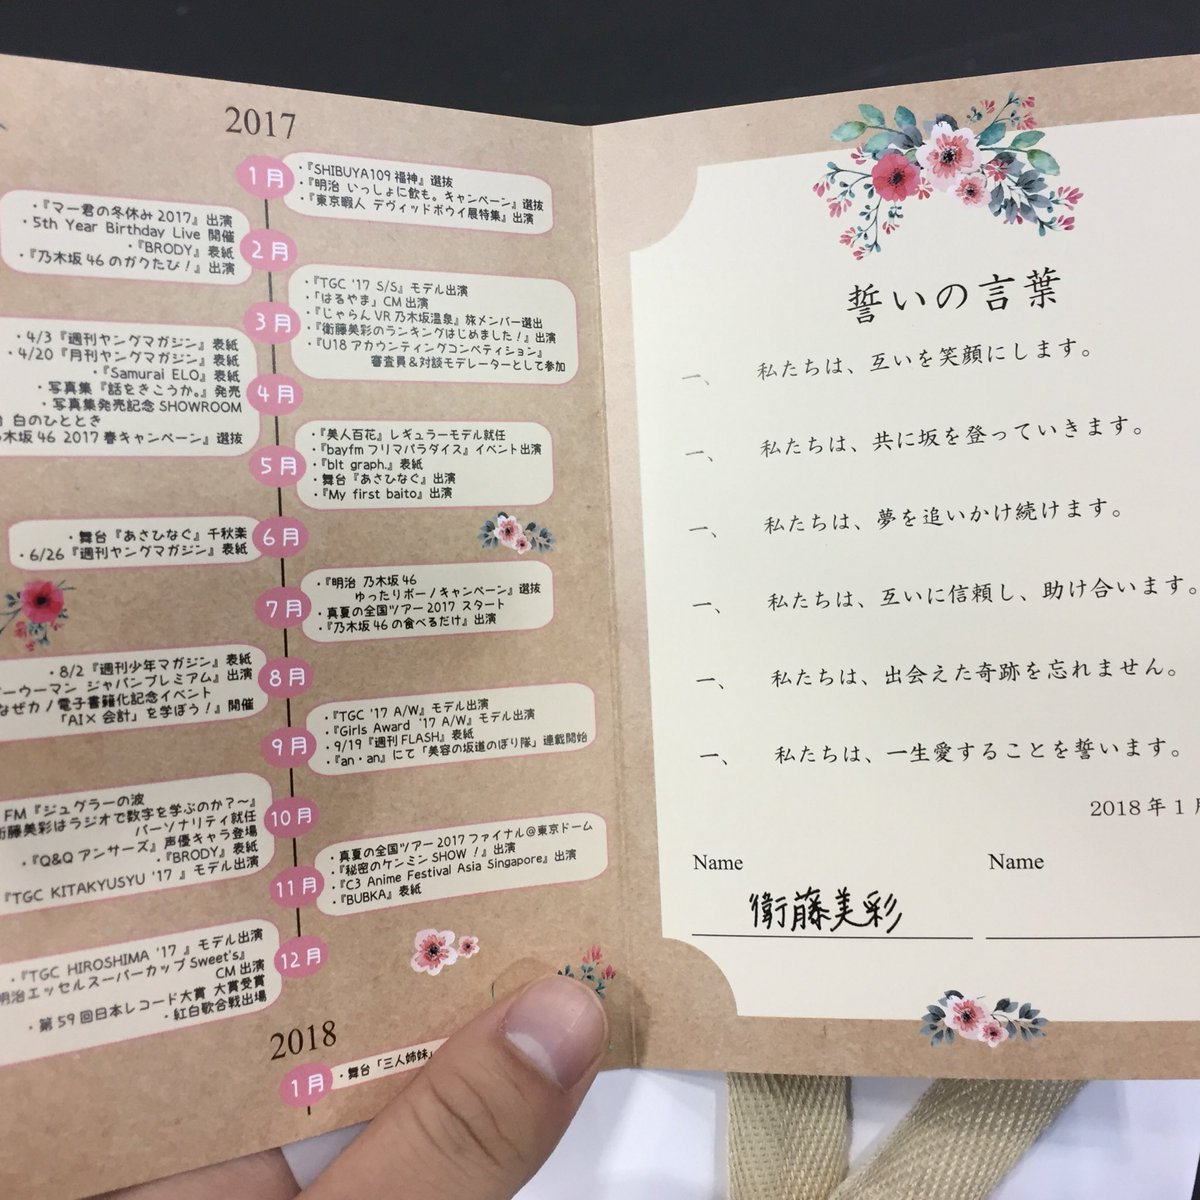 2017
1月
・『SHIBUYA109福神』選抜
・『明治 いっしょに飲も。キャンペーン』選抜
・『東京暇人 デヴィッドボウイ展特集』出演
・『マー君の冬休み2017』出演
・5th Year Birthday Live 開催
・『BRODY』表紙
・『乃木坂46のガクたび！』出演
2月
・『TGC '17 S/S』モデル出演
・「はるやま」CM出演
・『じゃらんVR乃木坂温泉』旅メンバー選出
・『衛藤美彩のランキングはじめました！』出演
・『U18アカウンティングコンペティション』
審査員＆対談モデレーターとして参加
3月
・4/3『週刊ヤングマガジン』表紙
・4/20『月刊ヤングマガジン』表紙
・『Samurai ELO』表紙
・写真集『話をきこうか。』発売
・写真集発売記念SHOWROOM
白のひととき
木坂46 2017春キャンペーン』選抜
4月
・『美人百花』レギュラーモデル就任
・『bayfmフリマパラダイス』イベント出演
・『blt graph.』表紙
・舞台『あさひなぐ』出演
・『My first baito』出演
5月
・舞台『あさひなぐ』千秋楽
・6/26『週刊ヤングマガジン』表紙
6月
・『明治 乃木坂46
ゆったりボーノキャンペーン』選抜
・真夏の全国ツアー2017 スタート
・『乃木坂46の食べるだけ』出演
7月
・8/2『週刊少年マガジン』表紙
ーウーマン ジャパンプレミアム』出演
なぜカノ電子書籍化記念イベント
「AI×会計」を学ぼう！』開催
8月
・『TGC '17 A/W』モデル出演
・『Girls Award '17 A/W』モデル出演
・9/19『週刊FLASH』表紙
・『an・an』にて「美容の坂道のぼり隊」連載開始
9月
FM『ジュグラーの波
衛藤美彩はラジオで数字を学ぶのか？〜』
パーソナリティ就任
・『Q&Qアンサーズ』声優キャラ登場
・『BRODY』表紙
『TGC KITAKYUSYU '17 』モデル出演
10月
・真夏の全国ツアー2017ファイナル@東京ドーム
・『秘密のケンミンSHOW！』出演
・『C3 Anime Festival Asia Singapore』出演
・『BUBKA』表紙
11月
・『TGC HIROSHIMA '17 』モデル出演
明治エッセルスーパーカップSweet's』
CM出演
・第59回日本レコード大賞 大賞受賞
・紅白歌合戦出場
12月
2018
1月
・舞台「三人姉妹」
誓いの言葉
一、 私たちは、互いを笑顔にします。
一、 私たちは、共に坂を登っていきます。
一、 私たちは、夢を追いかけ続けます。
一、 私たちは、互いに信頼し、助け合います。
一、 私たちは、出会えた奇跡を忘れません。
一、 私たちは、一生愛することを誓います。
2018年1月
Name
Name
衛藤美彩